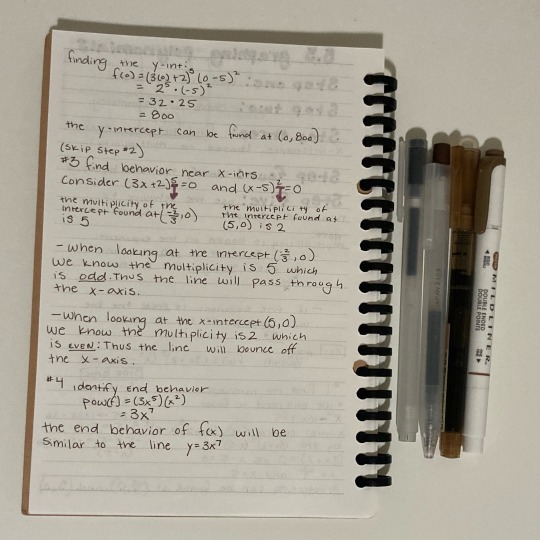 finding the y-int:
f(0) = (3(0)+2)⁵ (0-5)²
= 2⁵ · (-5)²
= 32 · 25
= 800
the y-intercept can be found at (0,800)
(skip step #2)
#3 find behavior near x-ints
Consider (3x+2)⁵=0 and (x-5)²=0
the multiplicity of the
intercept found at (-2/3, 0)
is 5
the multiplicity of
the intercept found at
(5,0) is 2
- when looking at the intercept (-2/3, 0)
we know the multiplicity is 5 which
is odd. Thus the line will pass through
the x-axis.
- when looking at the x-intercept (5,0)
we know the multiplicity is 2 which
is EVEN: Thus the line will bounce off
the x-axis.
#4 identify end behavior
pow(f) = (3x⁵)(x²)
= 3x⁷
the end behavior of f(x) will be
similar to the line y=3x⁷
MILDLINER
DOUBLE ENDED
DOUBLE POINTE